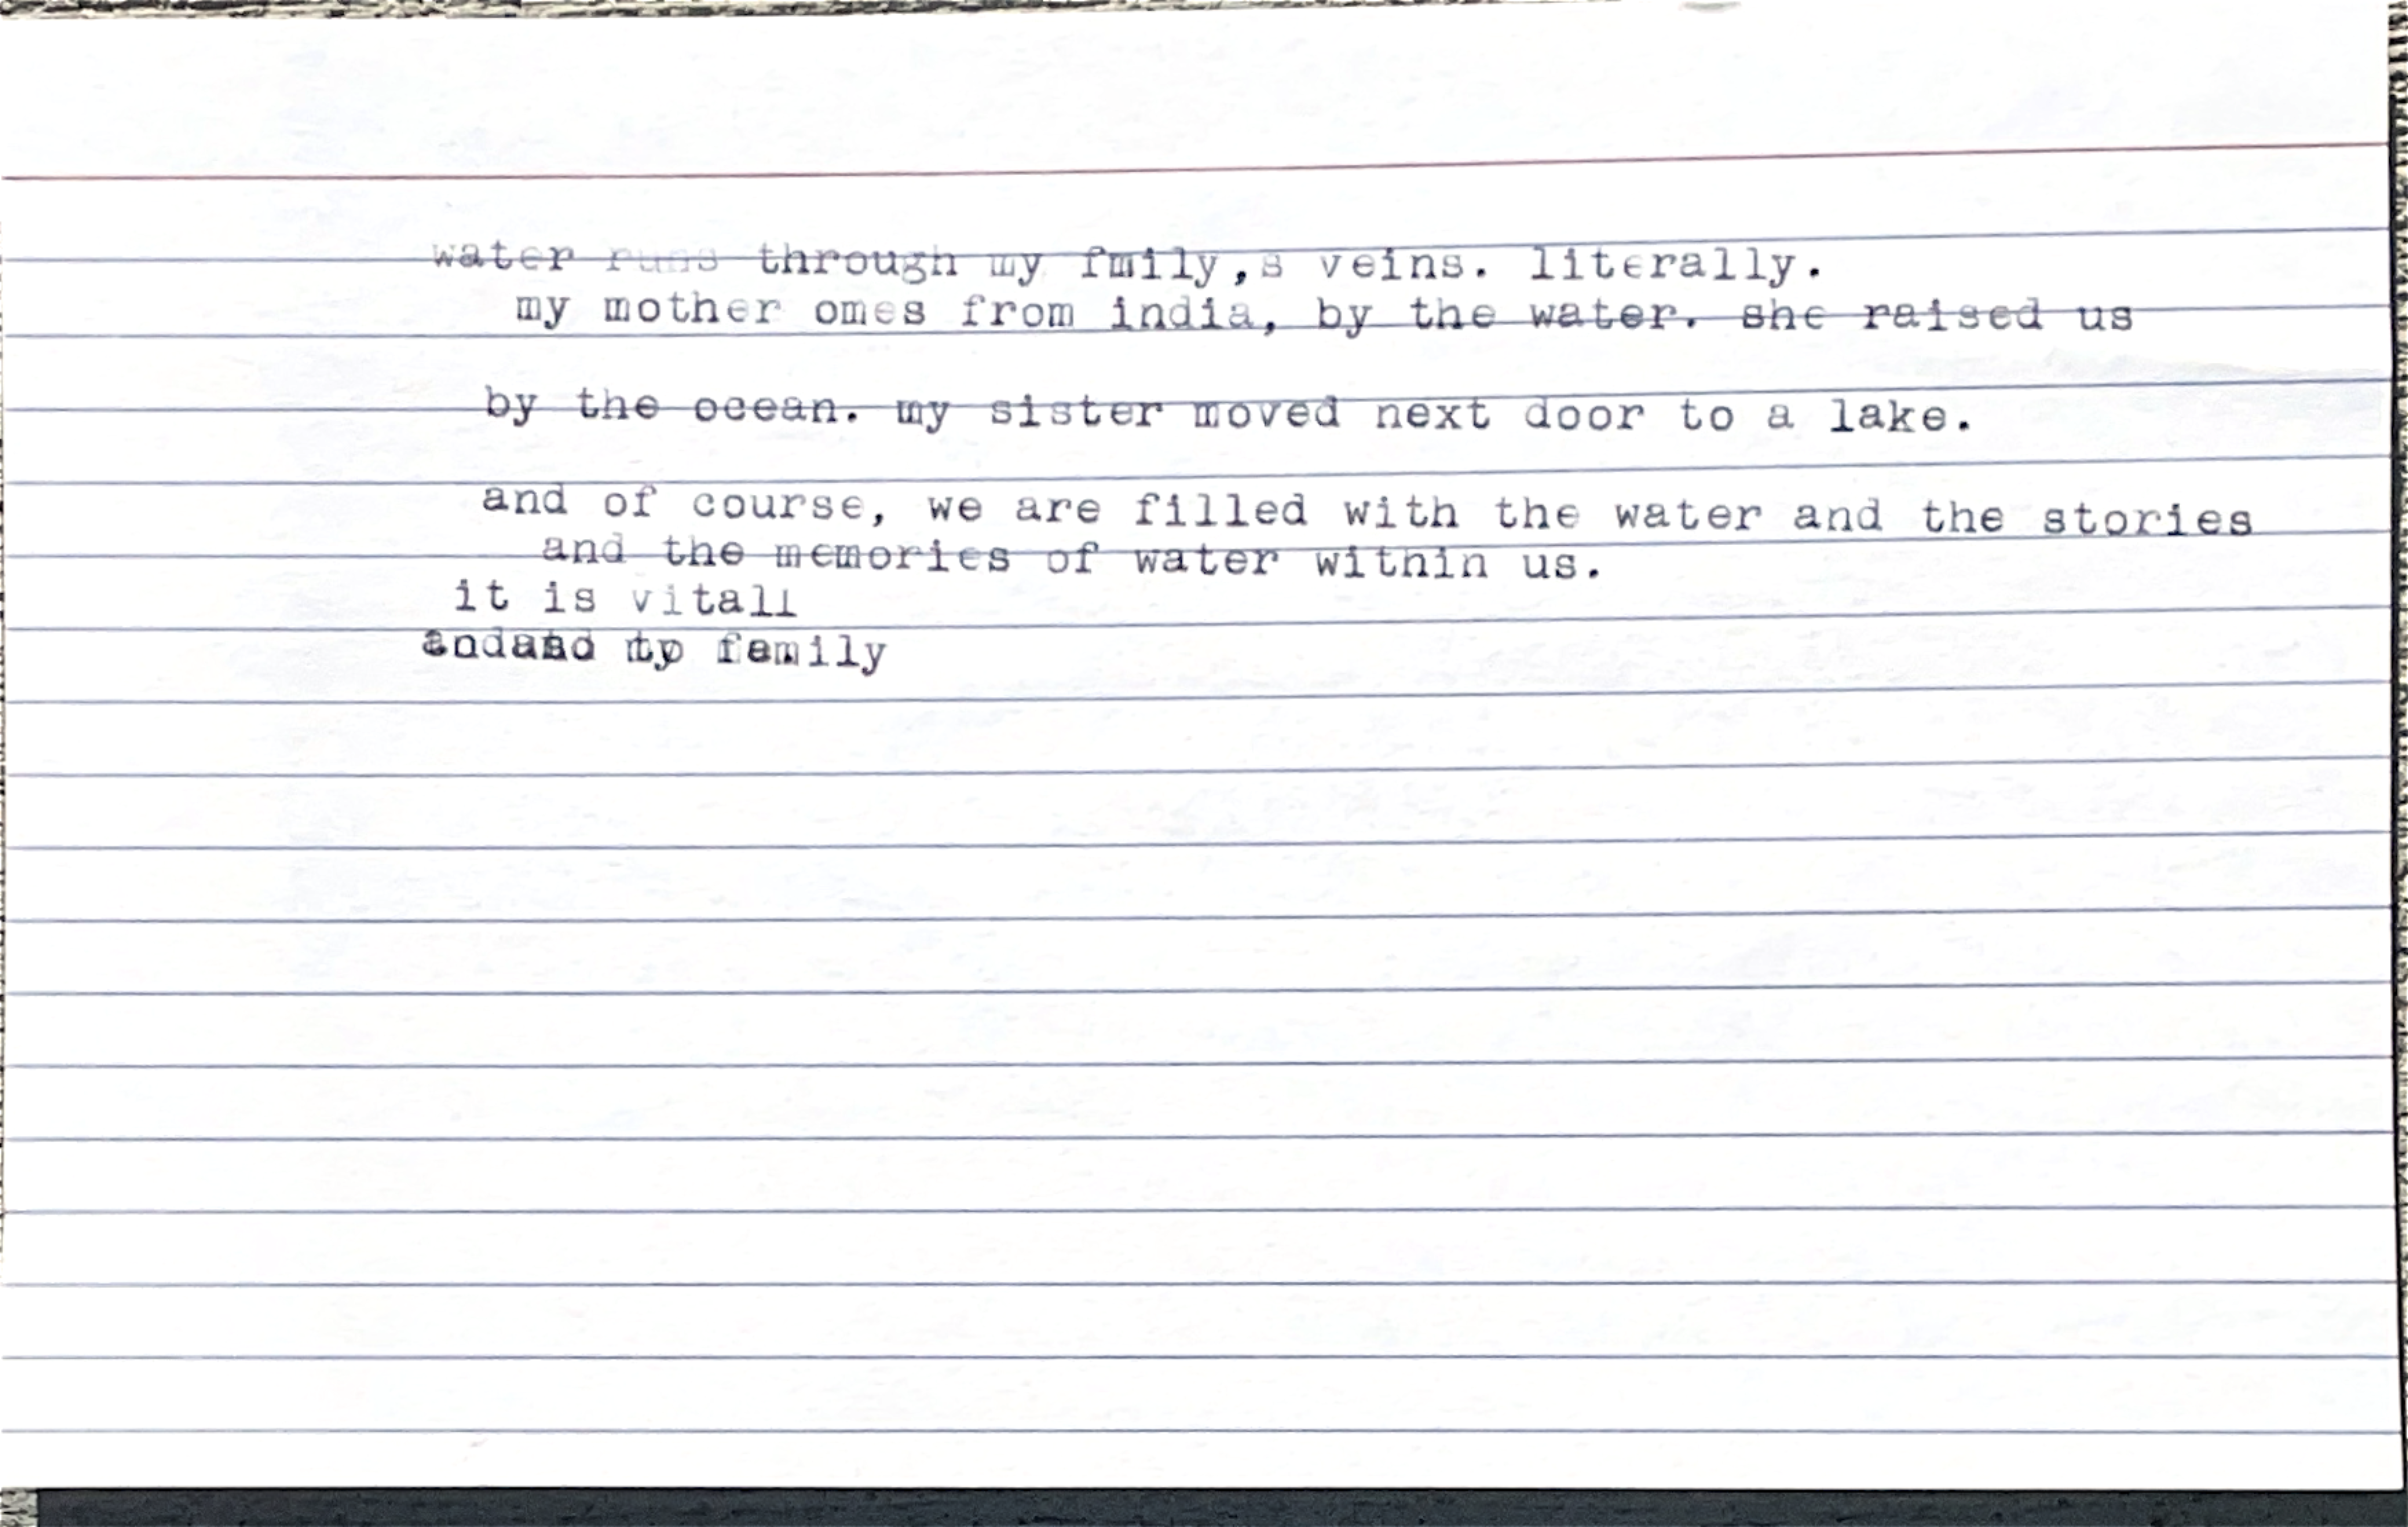 water runs through my fmily,s veins. literally.
my mother omes from india, by the water. she raised us
by the ocean. my sister moved next door to a lake.
and of course, we are filled with the water and the stories
and the memories of water within us.
it is vitall
family